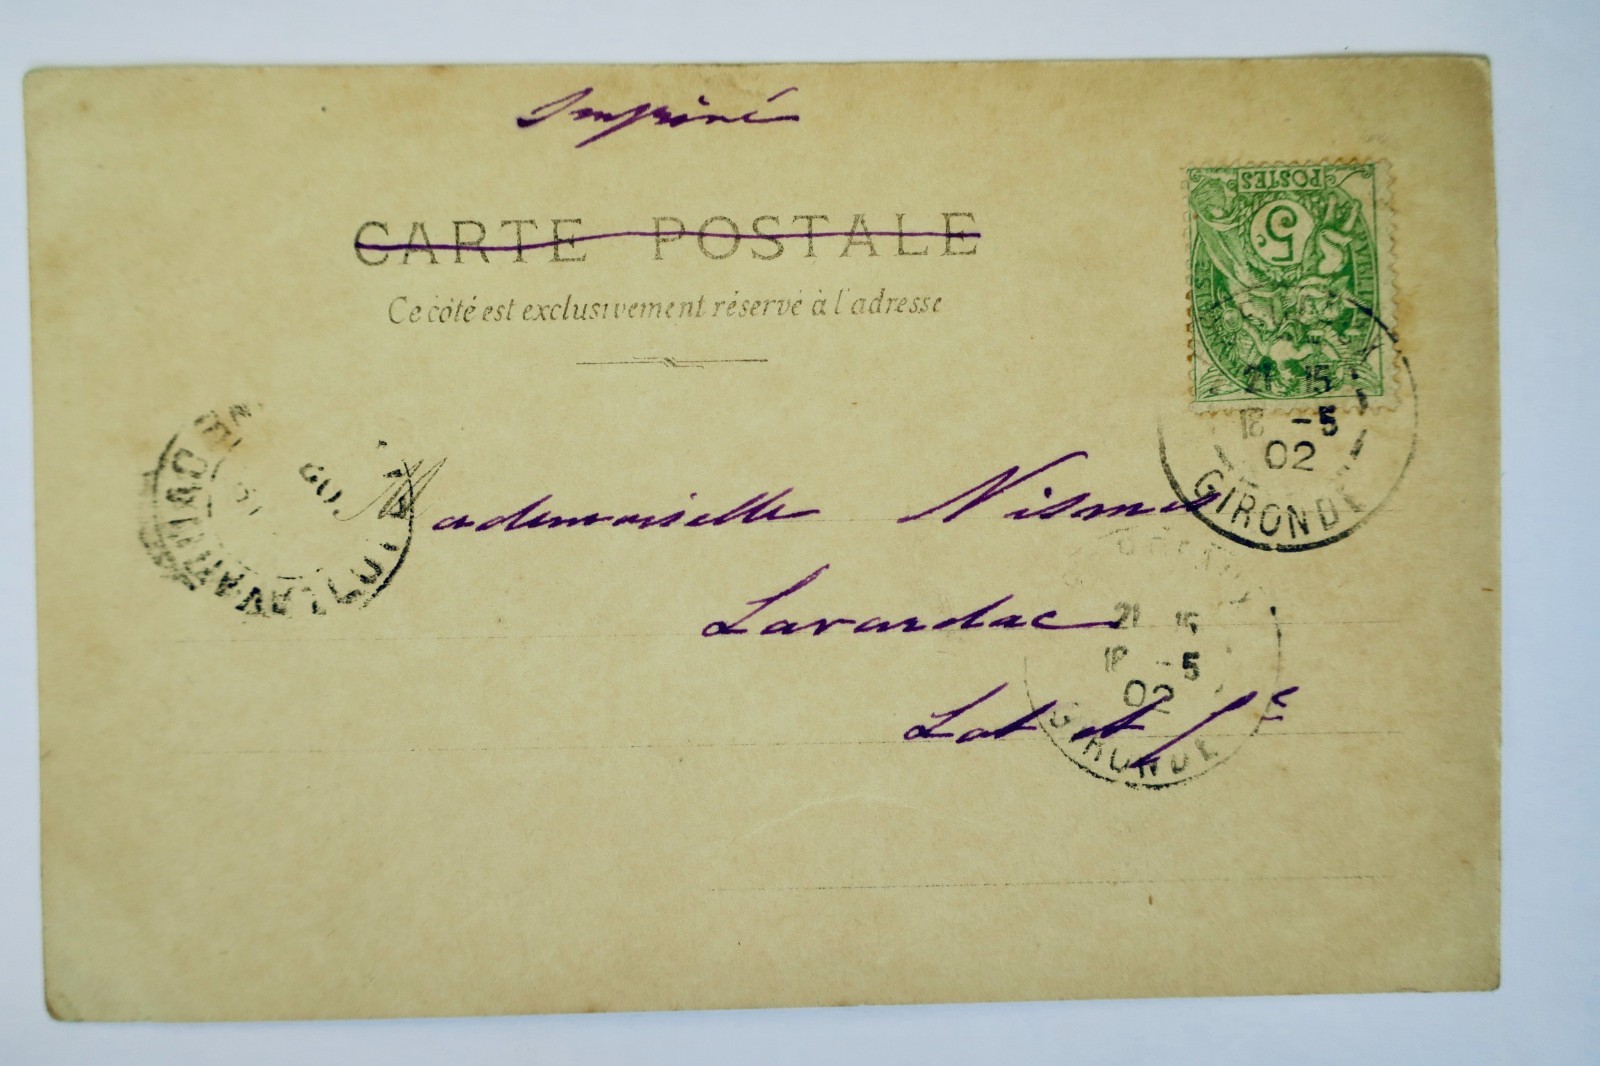 Imprimé
CARTE POSTALE
Ce côté est exclusivement réservé à l'adresse
POSTES
5c
21 15
18 -5
02
GIRONDE
Mademoiselle Nismes
Lavardac
Lot et Gne
21 15
18 -5
02
GIRONDE
LAVARDAC
LOT
02